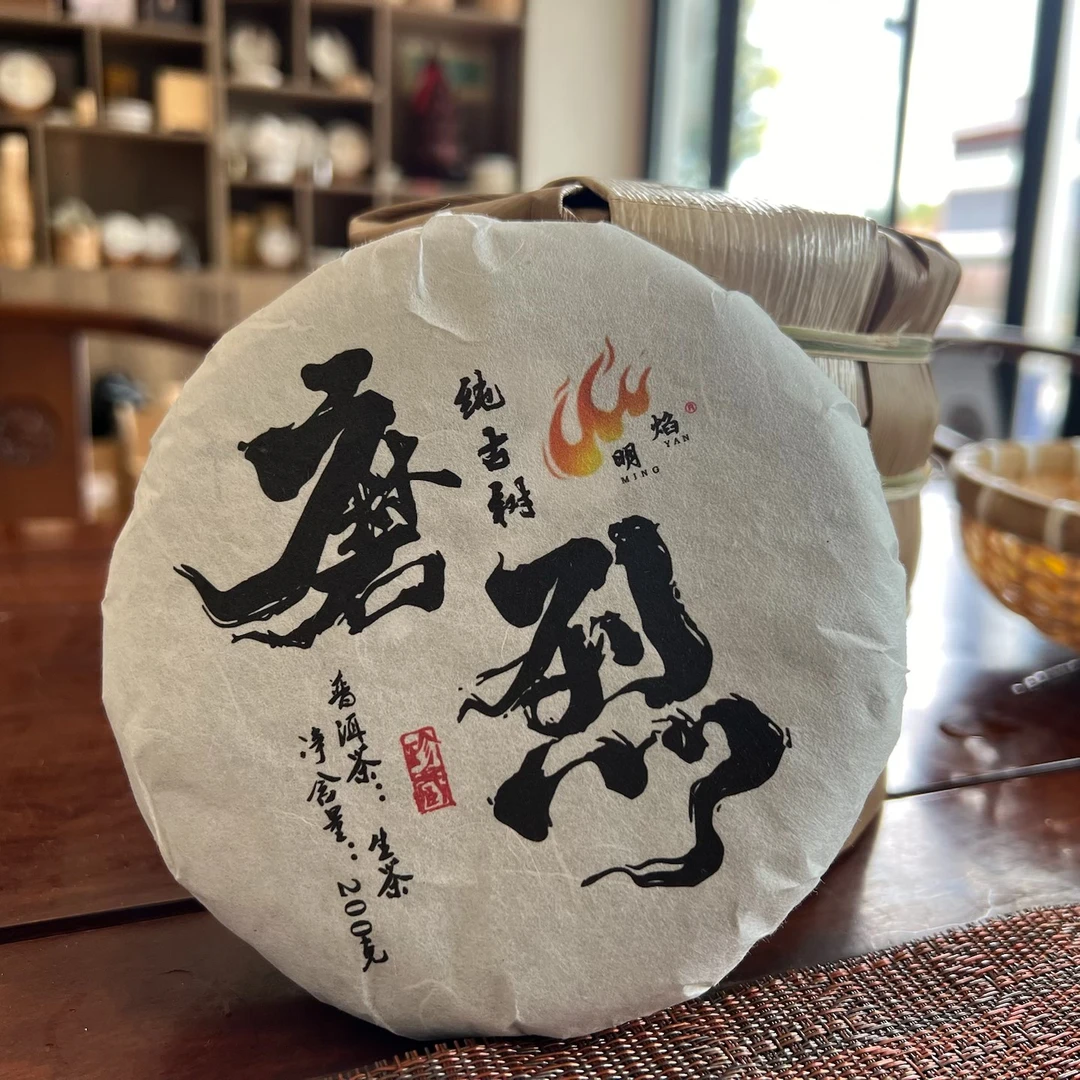 磨烈
纯古树
明焰®
MING YAN
普洱茶：生茶
净含量：200克
珍藏